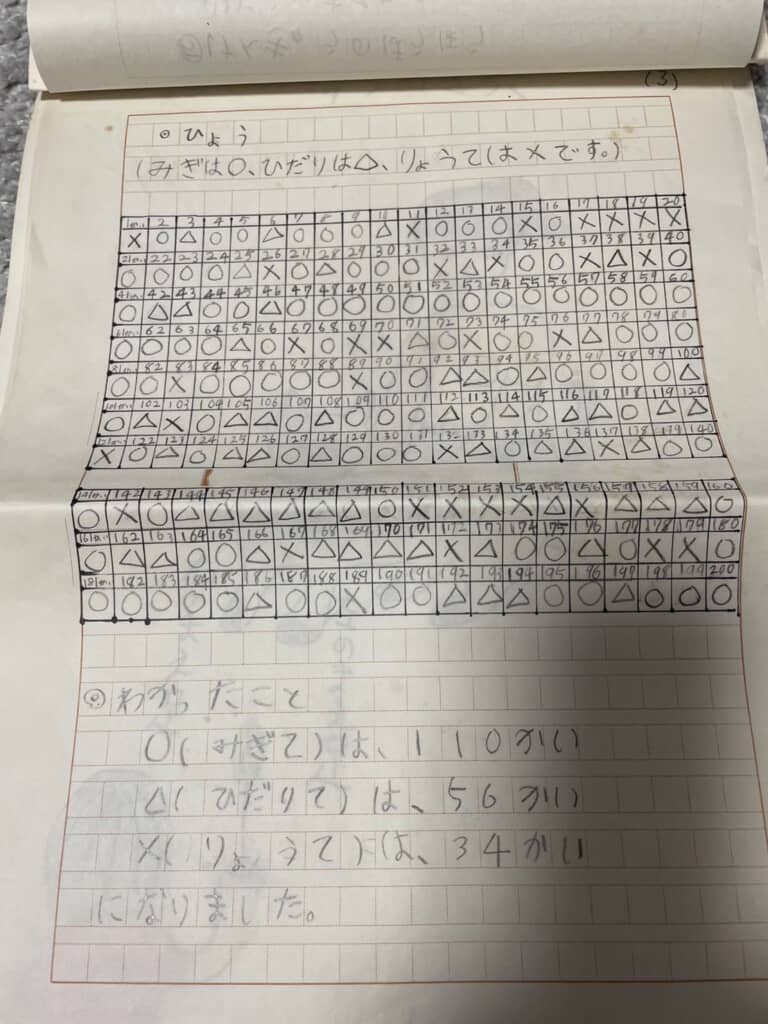 (3)
◎ ひょう
(みぎは○、ひだりは△、りょうては×です。)
1 2 3 4 5 6 7 8 9 10 11 12 13 14 15 16 17 18 19 20
× ○ △ ○ ○ △ ○ ○ ○ △ × ○ ○ ○ × ○ × × × ×
21 22 23 24 25 26 27 28 29 30 31 32 33 34 35 36 37 38 39 40
○ ○ ○ ○ △ × ○ △ ○ ○ ○ × △ × ○ ○ × △ × ○
41 42 43 44 45 46 47 48 49 50 51 52 53 54 55 56 57 58 59 60
○ △ △ ○ ○ △ ○ ○ ○ ○ ○ ○ ○ ○ ○ ○ ○ ○ ○ ○
61 62 63 64 65 66 67 68 69 70 71 72 73 74 75 76 77 78 79 80
○ ○ ○ ○ △ ○ × ○ × × △ ○ × ○ ○ × △ ○ ○ ○
81 82 83 84 85 86 87 88 89 90 91 92 93 94 95 96 97 98 99 100
○ ○ × ○ ○ ○ ○ ○ × ○ ○ △ △ ○ △ ○ ○ ○ ○ △
101 102 103 104 105 106 107 108 109 110 111 112 113 114 115 116 117 118 119 120
○ △ × ○ △ △ ○ △ ○ ○ ○ △ ○ △ ○ △ △ ○ △ △
121 122 123 124 125 126 127 128 129 130 131 132 133 134 135 136 137 138 139 140
× ○ △ ○ △ △ ○ △ ○ ○ ○ × △ ○ △ △ × △ ○ ○
141 142 143 144 145 146 147 148 149 150 151 152 153 154 155 156 157 158 159 160
○ × ○ △ △ △ △ △ △ ○ × × × × △ × △ △ △ ○
161 162 163 164 165 166 167 168 169 170 171 172 173 174 175 176 177 178 179 180
○ △ △ ○ ○ △ × △ △ △ △ × △ ○ ○ △ ○ × × ○
181 182 183 184 185 186 187 188 189 190 191 192 193 194 195 196 197 198 199 200
○ ○ ○ ○ ○ △ ○ ○ × ○ ○ △ △ △ ○ ○ △ ○ ○ ○
◎ わかったこと
○(みぎて)は、110かい
△(ひだりて)は、56かい
×(りょうて)は、34かい
になりました。